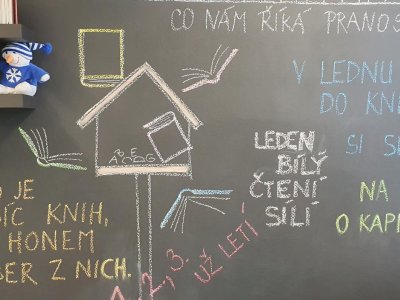 CO NÁM ŘÍKÁ PRANOS
V LEDNU
DO KN
SI S
LEDEN
BÍLÝ
ČTENÍ
SILÍ
NA
O KAPI
JE
ÍC KNIH,
HONEM
BER Z NICH.
1, 2, 3.
UŽ LETÍ